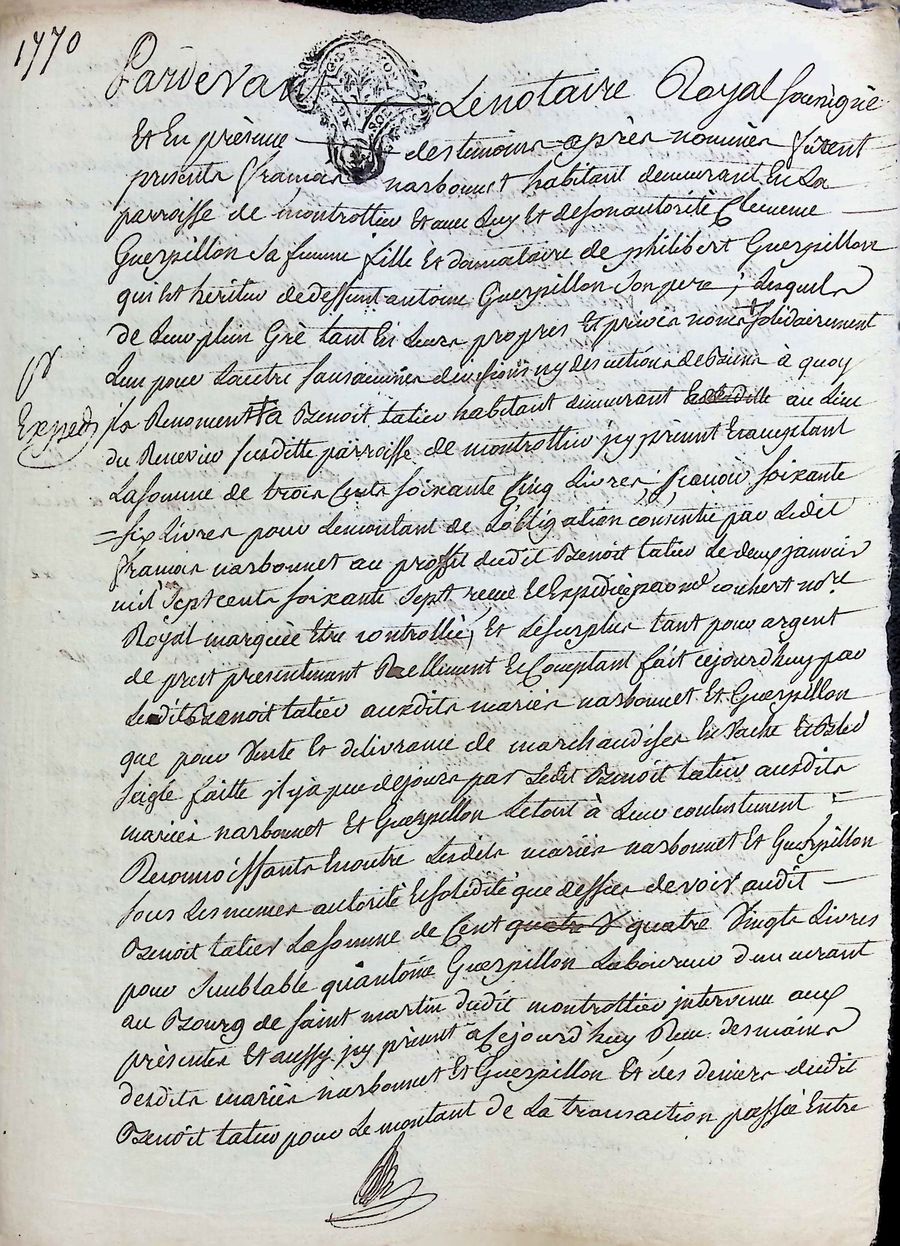 1770
Pardevant Le notaire Royal soussigné
Et En présence des temoins après nommés furent
présents françois narbonnet habitant demeurant En La
parroisse de montrottier Et avec Luy Et de son autorité Clemence
Guerpillon Sa femme fille Et donnataire de philibert Guerpillon
qui Est héritier de deffunt antoine Guerpillon Son pere, Lesquels
de Leur plein Gré tant En Leurs propres Et privés noms solidairement
Lun pour Lautre sans division ny discution de Biens à quoy
Exped
ils Renoncent a Benoit tatier habitant demeurant au Lieu
du susditte parroisse de montrottier icy présent Et acceptant
La somme de trois Cents soixante Cinq Livres, sçavoir soixante
=six Livres pour Le montant de Lobligation consentie par Ledit
françois narbonnet au proffit dudit Benoit tatier Le deux janvier
mil Sept cents soixante Sept reçue Et Expediée par me nore
Royal marquée Etre controllée, Et Le surplus tant pour argent
de prest presentement Réellement Et Comptant fait cejourdhuy par
Ledit Benoit tatier auxdits mariés narbonnet Et Guerpillon
que pour Vente Et délivrance de marchandises En Vache Et Bled
Seigle faitte il y a peu de jours par Ledit Benoit tatier auxdits
mariés narbonnet Et Guerpillon Le tout à Leur contentement
Reconnoissants En outre Lesdits mariés narbonnet Et Guerpillon
sous Les memes autorité Et solidité que dessus devoir audit
Benoit tatier La somme de Cent quatre quatre Vingts Livres
pour Semblable qu'antoine Guerpillon Laboureur demeurant
au Bourg de saint martin dudit montrottier intervenu aux
présentes Et aussy icy présent a cejourdhuy Reçu des mains
desdits mariés narbonnet Et Guerpillon Et des deniers dudit
Benoit tatier pour Le montant de La transaction passée Entre